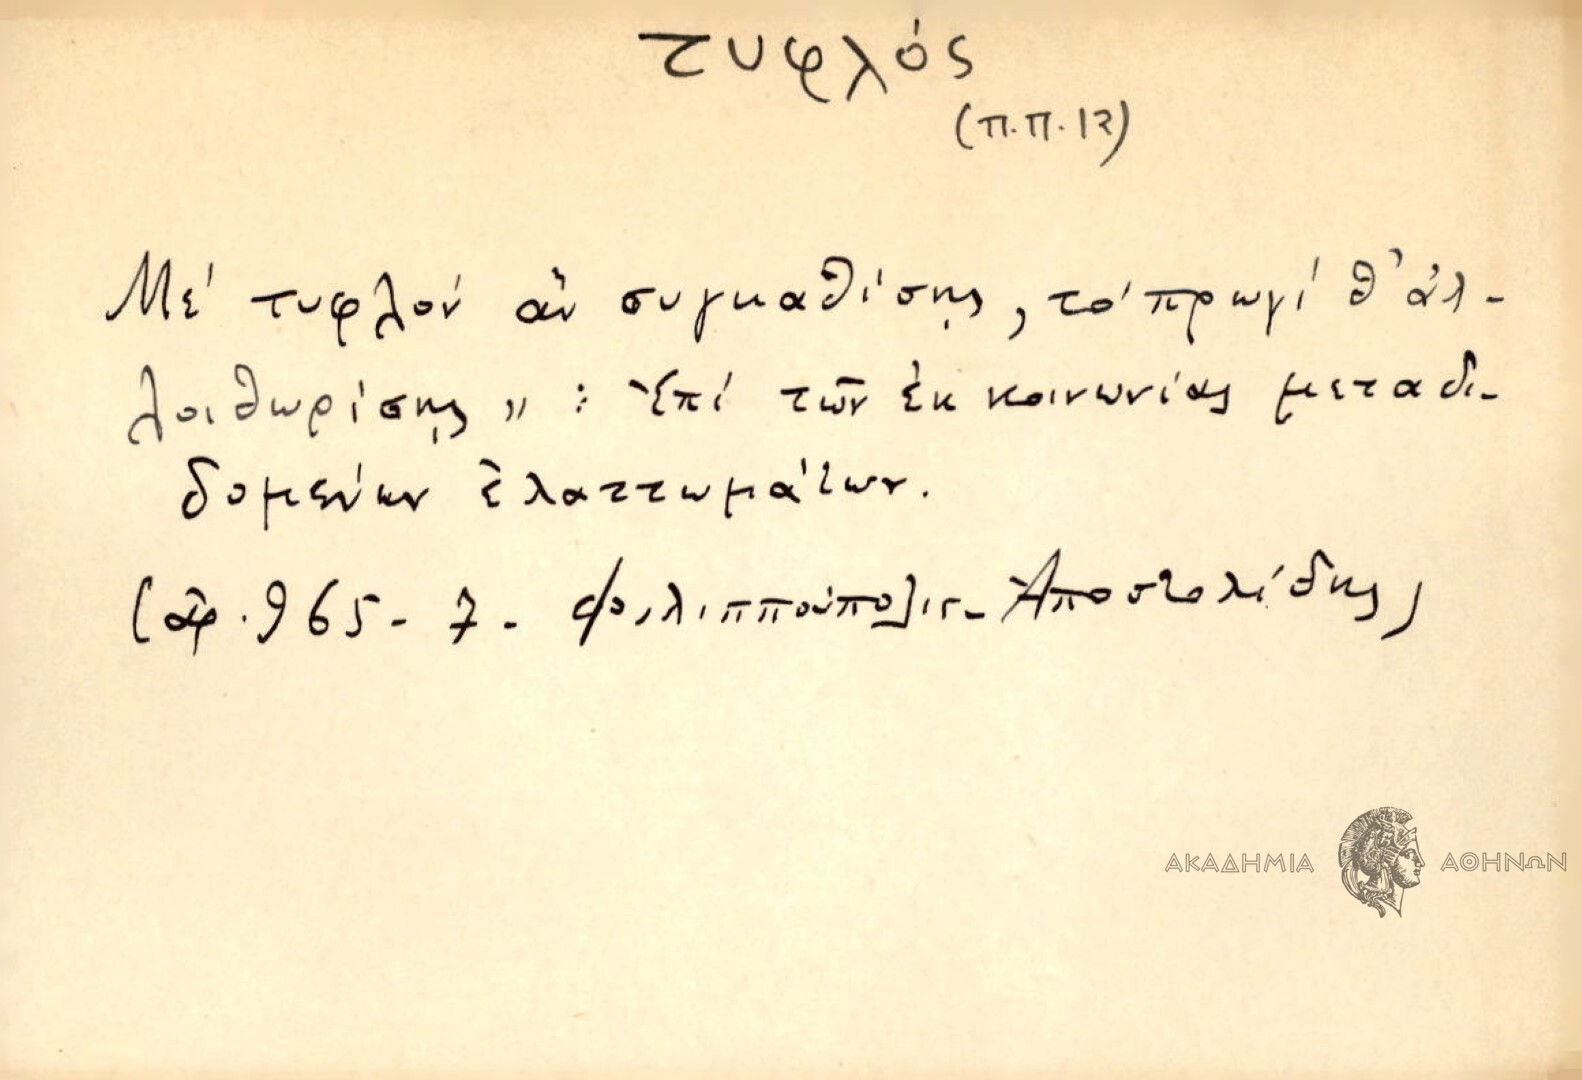 τυφλός
(Π.Π. 12)
Μέ τυφλόν ἄν συγκαθίσῃς, τό πρωγί θ' ἀλ-
λοιθωρίσῃς» : Ἐπί τῶν ἐκ κοινωνίας μεταδι-
δομένων ἐλαττωμάτων.
(ἀρ. 965 - 7 - Φιλιππούπολις - Ἀποστολίδης)
ΑΚΑΔΗΜΙΑ ΑΘΗΝΩΝ